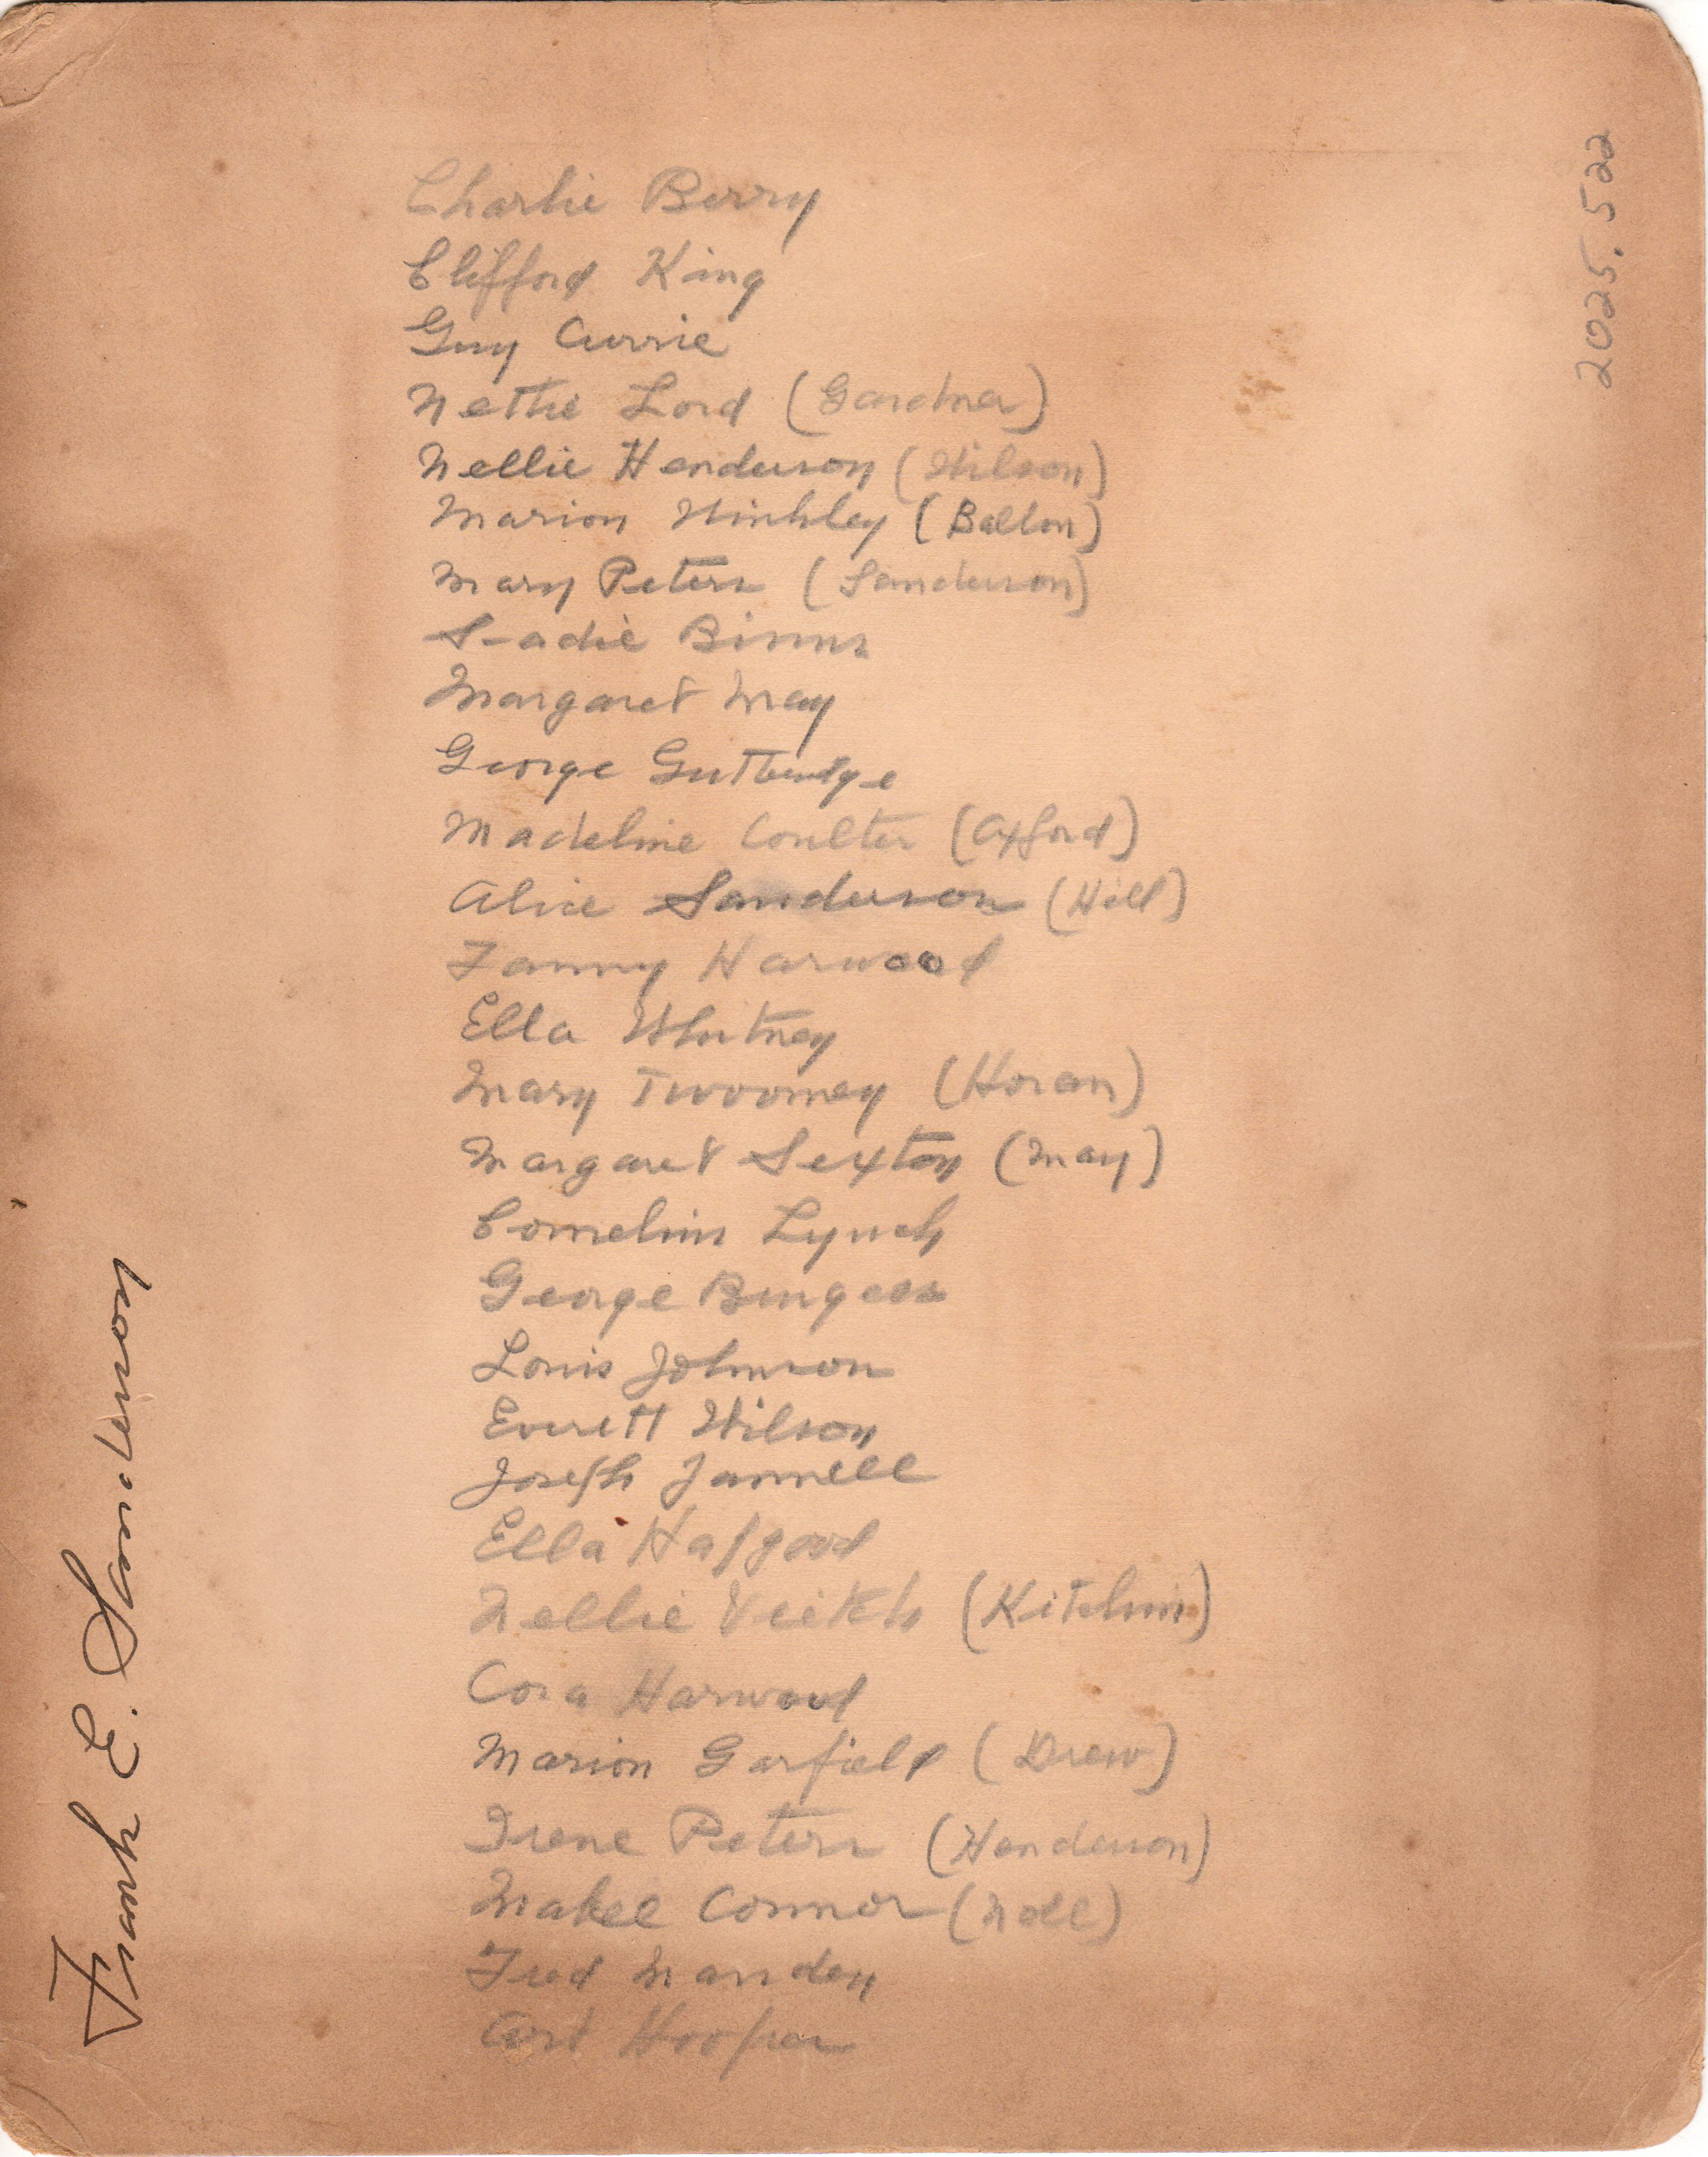 Charlie Berry
Clifford King
Guy Currie
Nettie Lord (Gardner)
Nellie Henderson (Wilson)
Marion Hinkley (Ballon)
Mary Peters (Sanderson)
Sadie Binns
Margaret May
George Gutteridge
Madeline Coulter (Axford)
Alice Sanderson (Hill)
Fanny Harwood
Ella Whitney
Mary Twoomey (Horan)
Margaret Sexton (May)
Cornelius Lynch
George Burgess
Louis Johnson
Everett Wilson
Joseph Jannell
Ella Hapgood
Nellie Veitch (Kitchin)
Cora Harwood
Marion Garfield (Drew)
Irene Peters (Henderson)
Mabel Connor (Noll)
Fred Manden
Art Hooper
Frank E. Sanderson
2025.522